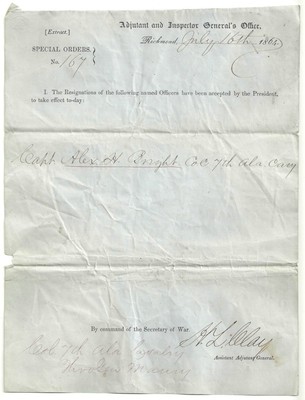 [Extract.]
Adjutant and Inspector General's Office,
Richmond, July 16th 1863.
SPECIAL ORDERS,
No. 167
I. The Resignations of the following named Officers have been accepted by the President,
to take effect to-day:
Capt Alex. H. Co C 7th Ala. Cavy
By command of the Secretary of War.
Assistant Adjutant General.
7th Ala Cavalry
Through